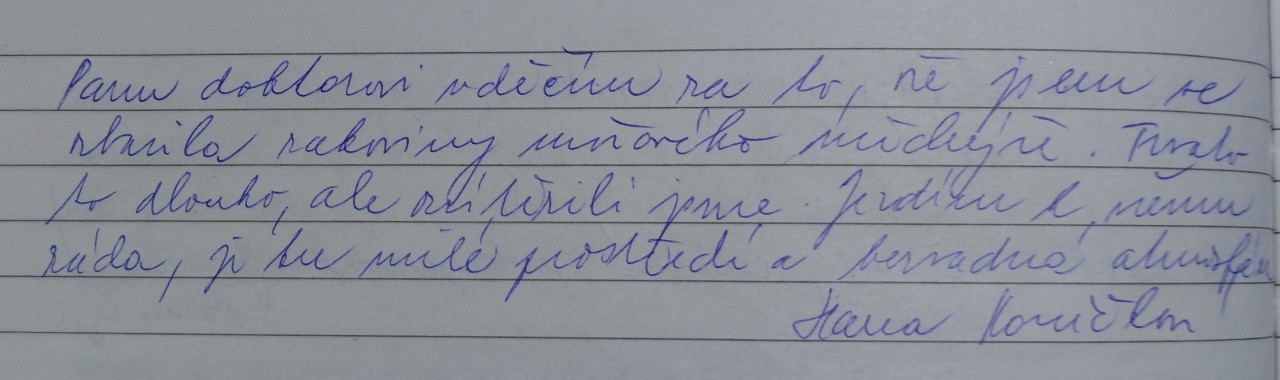 Panu doktorovi vděčím za to, že jsem se
zbavila rakoviny močového měchýře. Trvalo
to dlouho, ale zvítězili jsme. Jezdím k němu
ráda, je tu milé prostředí a bezvadná atmosféra.
Hana